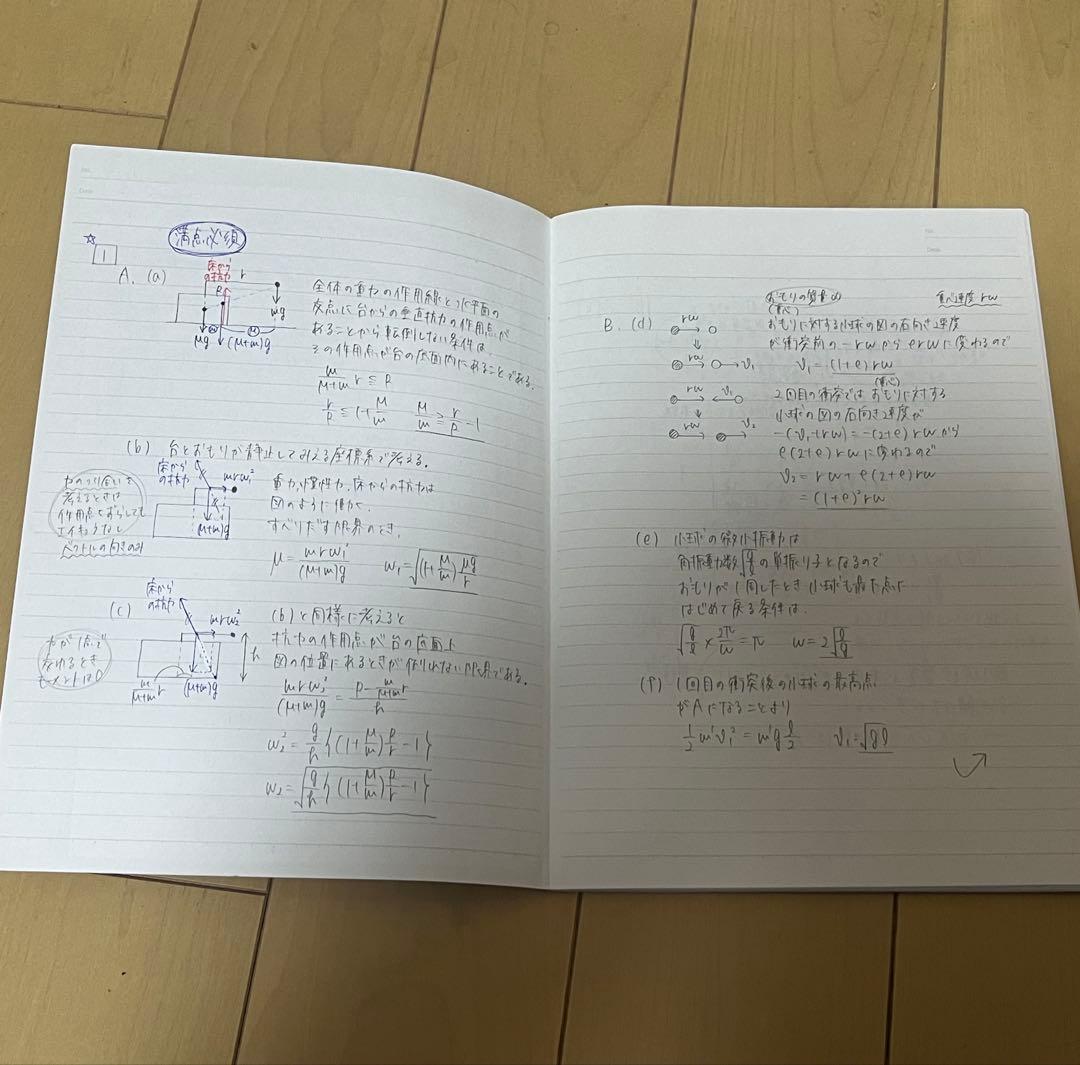 No.
Date
満点必須
☆
1
A. (a)
床から
の抗力
r
P
mg
Mg
(M+m)g
全体の重力の作用線と水平面の
交点に台からの垂直抗力の作用点が
あることから転倒しない条件は、
その作用点が台の底面内にあることである。
m/(M+m) r ≦ P
r/P ≦ 1+M/m  M/m ≧ r/P -1
(b) 台とおもりが静止してみえる座標系で考える。
力のつり合いを
考えるときは
作用点をずらしても
エイキョウなし
ベクトルの向きのみ
床から
の抗力
mrω₁²
(M+m)g
重力、慣性力、床からの抗力は
図のように働く。
すべりだす限界のとき、
μ = mrω₁²/(M+m)g  ω₁ = √((1+M/m) μg/r)
(c)
床から
の抗力
mrω₂²
h
m/(M+m) r
(M+m)g
力が1点で
交わるとき
モーメントは0
(b)と同様に考えると
抗力の作用点が台の底面上
図の位置にあるときが倒れない限界である。
mrω₂²/(M+m)g = (P - m/(M+m) r)/h
ω₂² = g/h {(1+M/m) P/r -1}
ω₂ = √(g/h {(1+M/m) P/r -1})
No.
Date
おもりの質量∞
(重心)
重心速度 rω
B. (d)
rω
rω
v₁
rω
v₁
v₂
おもりに対する小球の図の右向き速度
が衝突前の -rω から erω に変わるので
v₁ = (1+e)rω
(重心)
2回目の衝突ではおもりに対する
小球の図の右向き速度が
-(v₁+rω) = -(2+e)rω から
e(2+e)rω に変わるので
v₂ = rω + e(2+e)rω
= (1+e)²rω
(e) 小球の微小振動は
角振動数√(g/l)の単振り子となるので
おもりが1周したとき小球も最下点に
はじめて戻る条件は、
√(g/l) × 2π/ω = π  ω = 2√(g/l)
(f) 1回目の衝突後の小球の最高点
がAになることより
1/2 m'v₁² = m'g l/2  v₁ = √(gl)